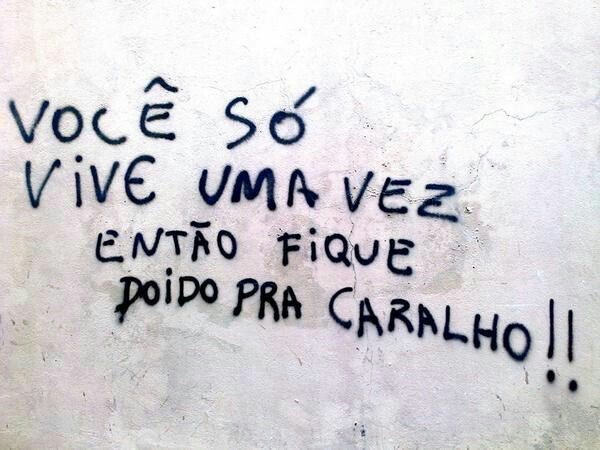 VOCÊ SÓ
ViVE UMA VEZ
ENTÃO FiQUE
DOiDO PRA CARALHO!!